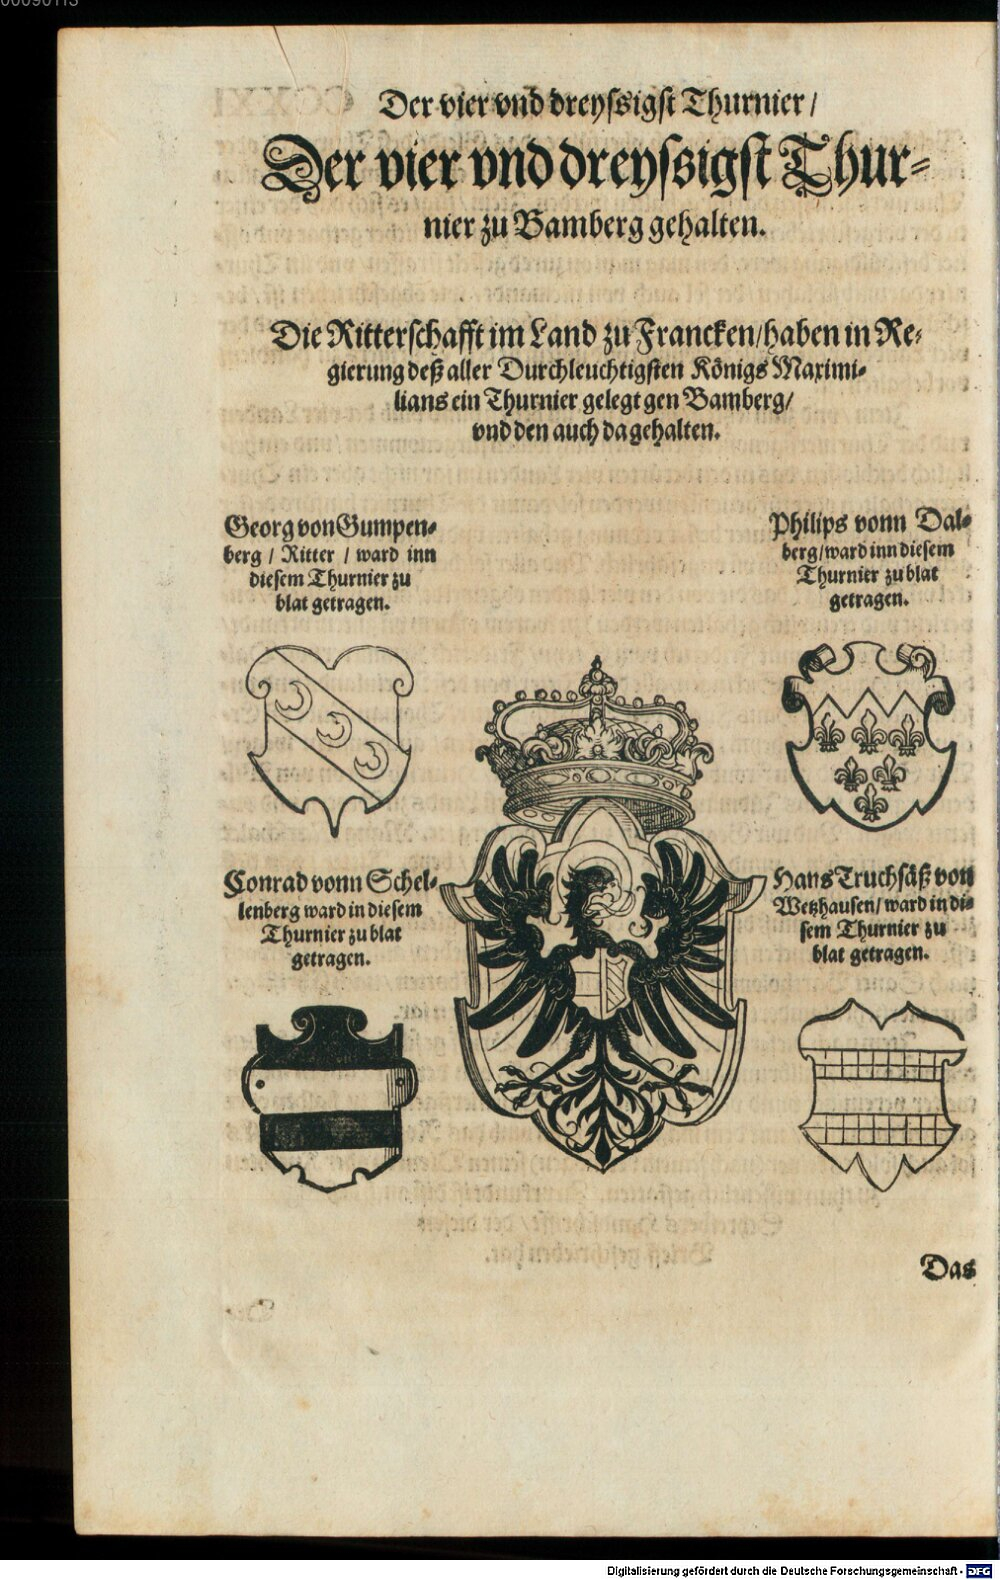 00090113
Der vier vnd dreyssigst Thurnier/
Der vier vnd dreyssigst Thur-
nier zu Bamberg gehalten.
Die Ritterschafft im Land zu Francken/haben in Re-
gierung deß aller Durchleuchtigsten Königs Maximi-
lians ein Thurnier gelegt gen Bamberg/
vnd den auch da gehalten.
Georg von Gumpen-
berg / Ritter / ward inn
diesem Thurnier zu
blat getragen.
Philips vonn Dal-
berg/ward inn diesem
Thurnier zu blat
getragen.
Conrad vonn Schel-
lenberg ward in diesem
Thurnier zu blat
getragen.
Hans Truchsäß von
Wetzhausen/ward in di-
sem Thurnier zu
blat getragen.
Das
Digitalisierung gefördert durch die Deutsche Forschungsgemeinschaft - DFG